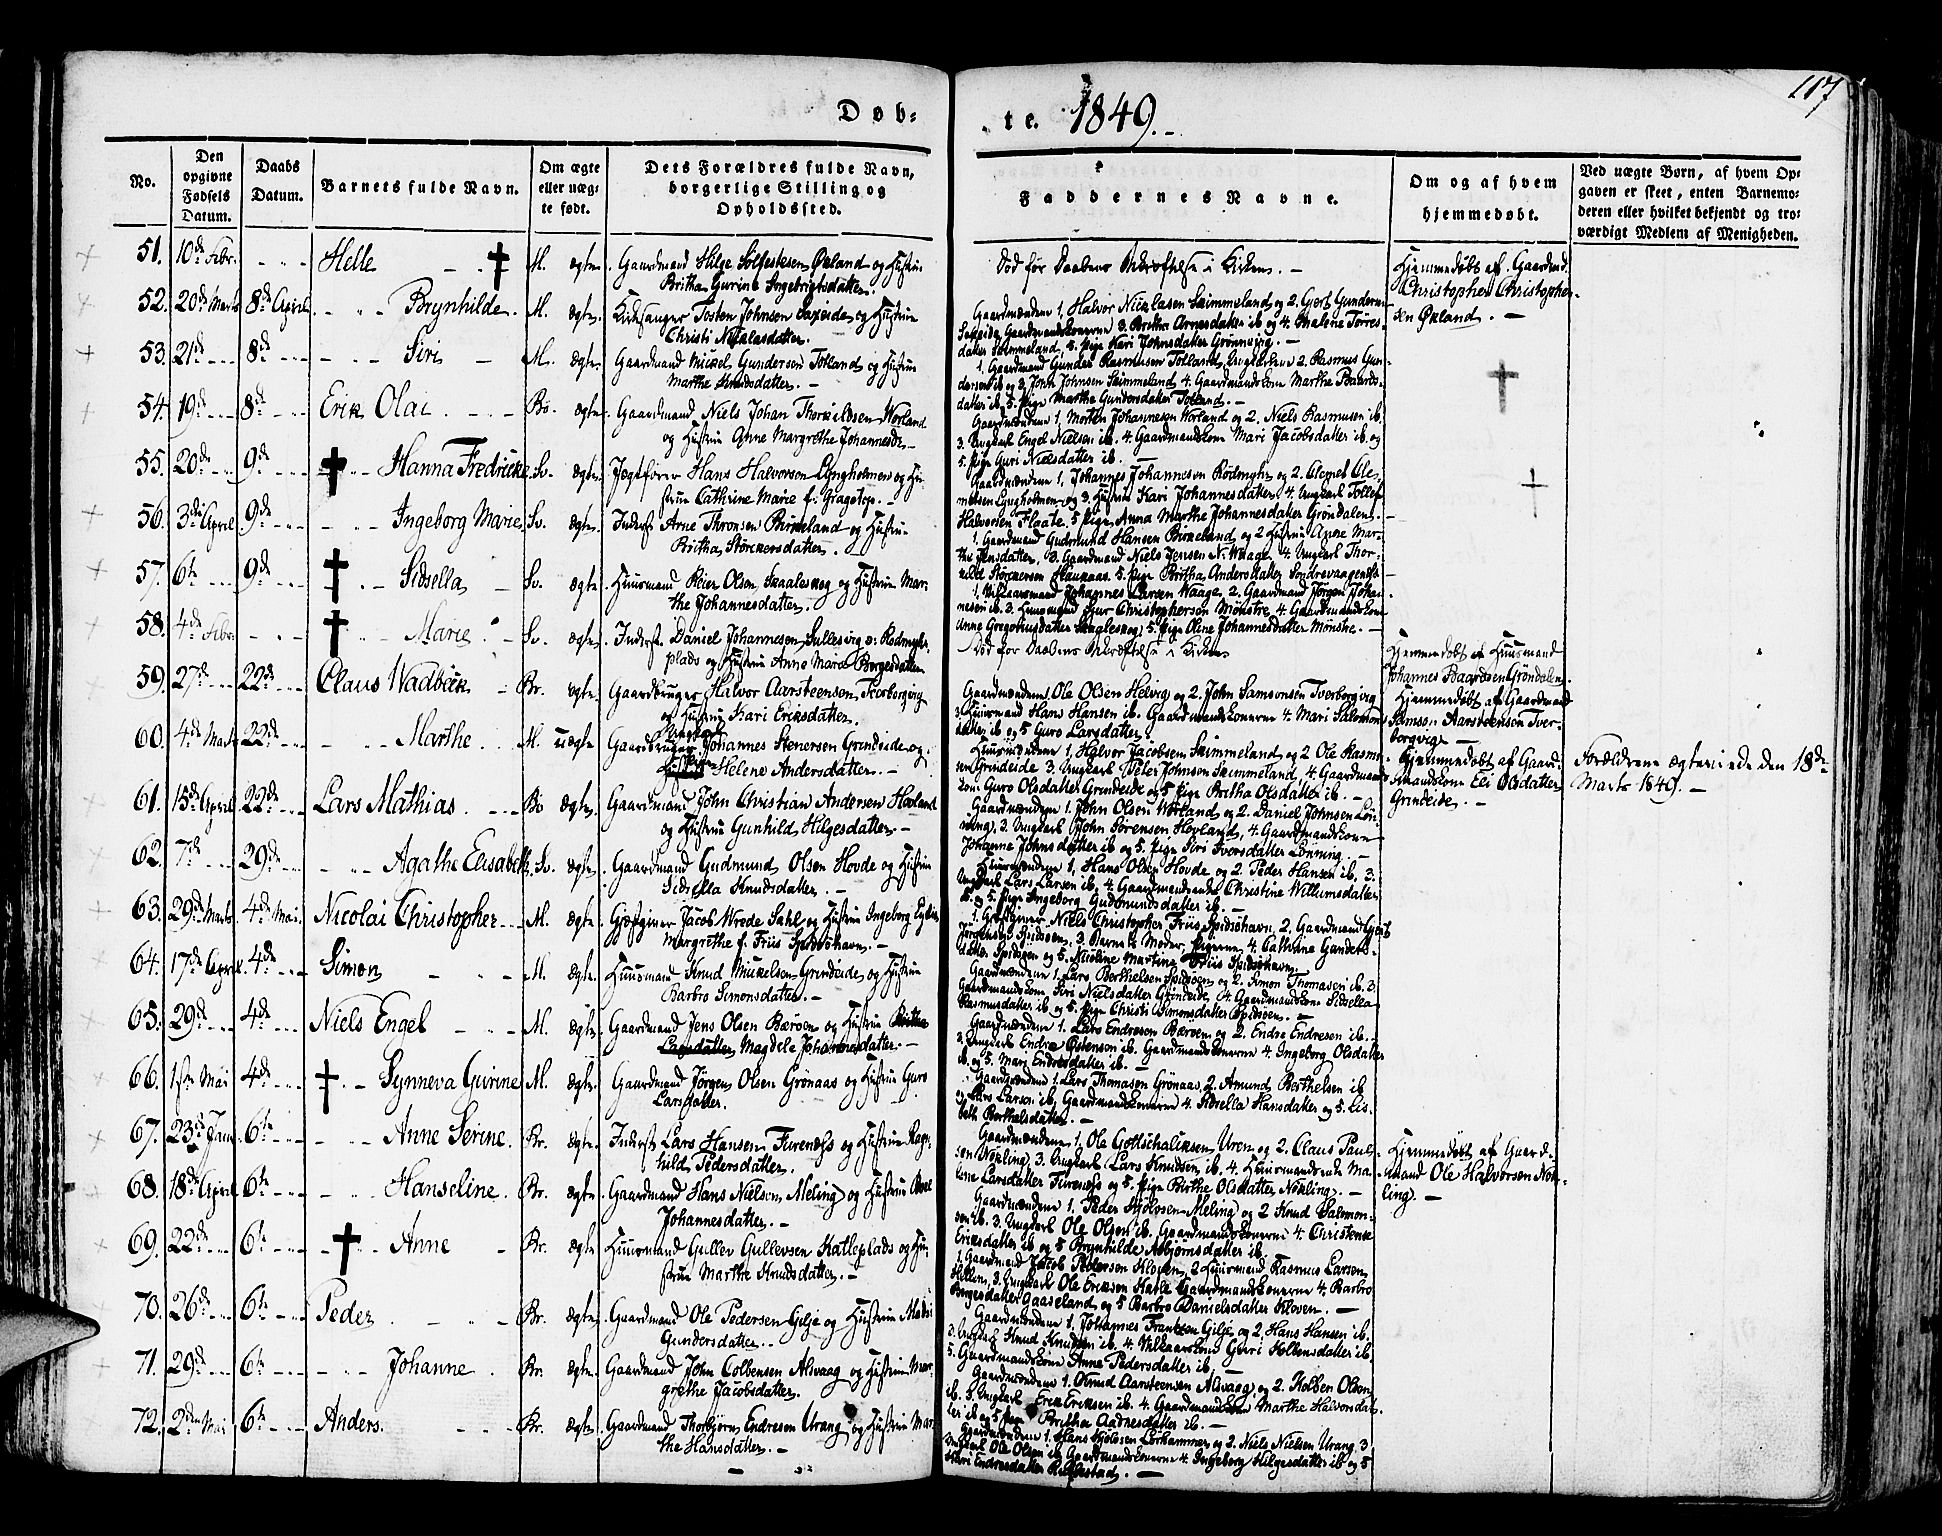 117
Døb-
te. 1849.
No.
Den opgivne Fødsels Datum.
Daabs Datum.
Barnets fulde Navn.
Om ægte eller uæg-
te født.
Dets Forældres fulde Navn,
borgerlige Stilling og
Opholdssted.
Faddernes Navne.
Om og af hvem
hjemmedøbt.
Ved uægte Børn, af hvem Op-
gaven er skeet, enten Barnemo-
deren eller hvilket bekjendt og tro-
værdigt Medlem af Menigheden.
51. 10de Febr. Helle M. ægte. Gaardmand Hilge Solfestesen Øxland og Hustru
Britha Gurine Ingebrigtsdatter.
Død før Daabens Bekræftelse i Kirken.
Hjemmedøbt af Gaardmd.
Christopher Christopher-
sen Øxland.
52. 20de Marts 8de April Brynhilde. M. ægte. Kirkesanger Tosten Johnsen Saxeide og Hustru
Christi Nicolasdatter.
Gaardmændene 1, Halvor Nicolasen Skimmeland og 2. Gjert Gunderse
Saxeide, Gaardmandskonerne 3. Britha Arnesdatter ib og 4. Malene Tørres-
datter Skimmeland, 5. Pige Kari Johnsdatter Grønnving.
53. 21de 8de Siri M. ægte. Gaardmand Mikkel Gundersen Totland og Hustru
Marthe Knudsdatter.
1. Gaardmand Gunder Rasmussen Totland, Ungkarlene 2. Rasmus Gun-
dersen ib og 3. John Johnsen Skimmeland 4. Gaardmandskone Marthe Baards-
datter ib. 5. Pige Marthe Gundersdatter Totland.
54. 19de 8de Erik Olai Bø ægte. Gaardmand Niels Johan Thorkildsen Worland
og Hustru Anne Margrethe Johannesdr.
Gaardmændene 1. Morten Johannesen Worland og 2. Niels Rasmusen ib.
3. Ungkarl Engel Nielsen ib. 4. Gaardmandskone Mari Jacobsdatter ib. og
5. Pige Guri Nielsdatter ib.
55. 20de 9de Hanna Fredrikke Sv. ægte. Jægtfører Hans Halvorsen Lyngholmen og Hu-
strue Cathrine Marie f. Gragetop.
Gaardmændene 1, Johannes Johannesen Rødmyhr og 2. Clemet Cle-
metsen Lyngholmen og 3. Hustru Kari Johannesdatter, 4. Ungkarl Tollef
Halvorsen Flaate. 5 Pige Anna Marthe Johannesdatter Grøndalen.
56. 3die April 9de Ingeborg Marie Sv. ægte. Inderst Arne Thronsen Birkeland og Hustru
Britha Størckersdatter.
1. Gaardmand Gudmund Hansen Birkeland og 2 Hustru Anne Mar-
the Jensdatter, 3. Gaardmand Niels Jensen N. Waage 4. Ungkarl Thor-
kild Størckersen Haukaas. 5. Pige Britha Andersdatter
57. 6te 9de Sidsella Sv. ægte. Huusmand Reier Olsen Skaaleskog og Hustru Mar-
the Johannesdatter.
1. Vilkaarsmand Johannes Larsen Waage, 2. Gaardmand Jørgen Johan-
nesen ib. 3. Huusmand Christophersen Mønstre, 4. Gaardmandskone
Anne Gregoriusdatter 5. Pige Oline Johannesdatter Mønstre.
58. 4de Febr. Marie Sv. ægte. Inderst Daniel Johannesen
plads og Hustru Anne Marie Børgesdatter
Død før Daabens Bekræftelse i Kirken
Hjemmedøbt af Huusmand
Johannes Baardsen Grøndalen.
59. 27de 22de Claus Wadbek Br. ægte. Gaardbruger Halvor Aarsteensen Tverborgvig
og Hustru Kari Eriksdatter.
Gaardmændene 1. Ole Olsen Helvig og 2. John Samsonsen Tverborgvig
3. Huusmand Hans Hansen ib. Gaardmandskonerne 4. Mari Salomons-
datter ib. og 5 Guro Larsdatter
Hjemmedøbt af Gaardmand
Samson Aarsteensen Tver-
borgvig.
60. 4de Marts 22de Marthe M. uægte. Gaardbruger Johannes Stenersen Grindeide og
Helene Andersdatter.
Huusmændene 1. Halvor Jacobsen Skimmeland og 2 Ole Rasmu-
sen Grindeide 3. Ungkarl Peter Johnsen Skimmeland, 4. Gaardmands-
kone Guro Olsdatter Grindeide og 5 Pige Britha Olsdatter ib.
Hjemmedøbt af Gaard-
mandskone Eli Olsdatter
Grindeide.
Forældrene ægteviede den 18de
Marts 1849.
61. 15de April 22de Lars Mathias Bø ægte. Gaardmand John Christian Andersen Hovland
og Hustru Gunhild Hilgesdatter.
Gaardmændene 1. John Olsen Worland og 2. Daniel Johnsen Løn-
ning, 3. Ungkarl John Sørensen Hovland, 4. Gaardmandskone
Johanne Johnsdatter ib og 5. Pige Siri Iversdatter Lønning.
62. 7de 29de Agathe Elisabeth Sv. ægte. Gaardmand Gudmund Olsen Hovde og Hustru
Sidsella Knudsdatter.
Huusmændene 1. Hans Olsen Hovde og 2. Peder Hansen ib. 3.
Ungkarl Lars Larsen ib. 4. Gaardmandsenke Christine Willumsdatter
ib. og 5. Pige Ingeborg Gudmundsdatter ib.
63. 29de Marts 4de Mai Nicolai Christopher M. ægte. Gjæstgiver Jacob Wrede Sahl og Hustru Ingeborg
Margrethe f. Friis Spidsøhavn.
1. Gjæstgiver Niels Christopher Friis Spidsøhavn, 2. Gaardmand Gjert
Jørgensen Spidsøen, 3. Barnets Moder, Pigerne 4. Cathrine Gunders-
datter Spidsøen og 5. Nicoline Martine Friis Spidsøhavn.
64. 17de April 4de Simon M. ægte. Huusmand Knud Mikkelsen Grindeide og Hustru
Barbro Simonsdatter.
Gaardmændene 1. Lars Berthelsen Spidsøen og 2. Simon Thomasen ib. 3.
Gaardmandskone Siri Nielsdatter Grindeide, 4. Gaardmandskone Sidsella
Rasmusdatter ib og 5. Pige Christi Simonsdatter Spidsøen.
65. 29de 4de Niels Engel M. ægte. Gaardmand Jens Olsen Bærøen og Hustru Britha
Larsdatter Magdele Johannesdatter.
Gaardmændene 1. Lars Endresen Bærøen og 2. Endre Endresen ib.
3. Ungkarl Endre Østensen ib. Gaardmandskonerne 4. Ingeborg Olsdatter
ib. og 5. Mari Endresdatter ib.
66. 1ste Mai 4de Synneva Gurine M. ægte. Gaardmand Jørgen Olsen Grønaas og Hustru Guro
Larsdatter.
Gaardmændene 1. Lars Thomasen Grønaas, 2. Amund Berthelsen ib
3. Lars Larsen ib. Gaardmandskonerne 4. Sidsella Hansdatter og 5. Lis-
beth Berthelsdatter.
67. 23de Jan. 6te Anne Serine. Br. ægte. Inderst Lars Hansen Furenæss og Hustrue Ragn-
hild Pedersdatter.
Gaardmændene 1. Ole Gotschalksen Uren og 2. Claus Paul-
sen Nøkling, 3. Ungkarl Lars Knudsen ib. 4. Huusmandsenke Ma-
lene Larsdatter Furenæss og 5. Pige Birthe Olsdatter Nøkling.
Hjemmedøbt af Gaard-
mand Ole Halvorsen Nøk-
ling.
68. 18de April 6te Hanseline. Br. ægte. Gaardmand Hans Nielsen Meling og Hustrue
Johannesdatter.
Gaardmændene 1. Peder Meling og 2 Knud Salomon-
sen ib. 3. Ungkarl Ole Olsen ib. Gaardmandskonerne 4. Christense
Eriksdatter ib og 5 Brynhilde Asbjørnsdatter ib.
69. 22de 6te Anne Br. ægte. Huusmand Gullev Gullevsen Katleplads og Hu-
strue Marthe Knudsdatter.
1. Gaardmand Jacob Pedersen Kloven, 2 Huusmand Rasmus Larsen
3. Ungkarl Ole Eriksen Katle Gaardmandskonerne 4. Barbro
Børgesdatter Gaaseland og 5 Barbro Danielsdatter Kloven.
70. 26de 6te Peder Br. ægte. Gaardmand Ole Pedersen Gilje og Hustrue
Gundersdatter.
Gaardmændene 1. Johannes Frantzen Gilje og 2. Hans Hansen ib.
3. Ungkarl Knud Knudsen ib. 4. Vilkaarskone Guri Kolbensdatter ib.
5. Gaardmandskone Anne Pedersdatter ib.
71. 29de 6te Johanne Br. ægte. Gaardmand John Colbensen Alsvaag og Hustrue Mar-
grethe Jacobsdatter.
Gaardmændene 1. Knud Aarsteensen Alsvaag, og 2. Kolben Olsen
ib. 3. Ungkarl Erik Eriksen ib. 4. Gaardmandskone Marthe Halvorsdat-
ter ib og 5 Pige Britha Aadnesdatter ib.
72. 2den Mai 6te Anders. Br. ægte. Gaardmand Thorbjørn Endresen Urang og Hustrue Mar-
the Hansdatter.
Gaardmændene 1. Hans Lorhammer og 2. Niels Nielsen Urang 3
Ungkarl Ole Olsen ib Gaardmandskonerne 4. Ingeborg Hilgesdatter ib og 5
Kari Endresdatter